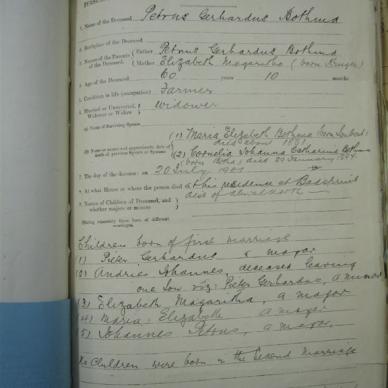 1. Name of the Deceased Petrus Gerhardus Bothma
2. Birthplace of the Deceased
3. Names of the Parents of the Deceased Father Petrus Gerhardus Bothma
Mother Elizabeth Magaritha (born Kruger)
4. Age of the Deceased 60 years 10 months
5. Condition in life (occupation) Farmer
6. Married or Unmarried, Widower or Widow widower
(a) Name of Surviving Spouse
(1) Maria Elizabeth Bothma born
died about
(2) Cornelia Johanna Catharina Bothma
born Botha, died 20 January
7. The day of the decease: on 20 July
8. At what House or where the person died at his residence at
dist of
9. Names of Children of Deceased, and whether majors or minors
Children born of first marriage
(1) Pieter Gerhardus a major
(2) Andries Johannes, deceased leaving
one son viz: Pieter Gerhardus, a minor
(3) Elizabeth Magaritha, a major
(4) Maria Elizabeth a major
(5) Johannes Petrus, a major
No Children were born in the Second Marriage